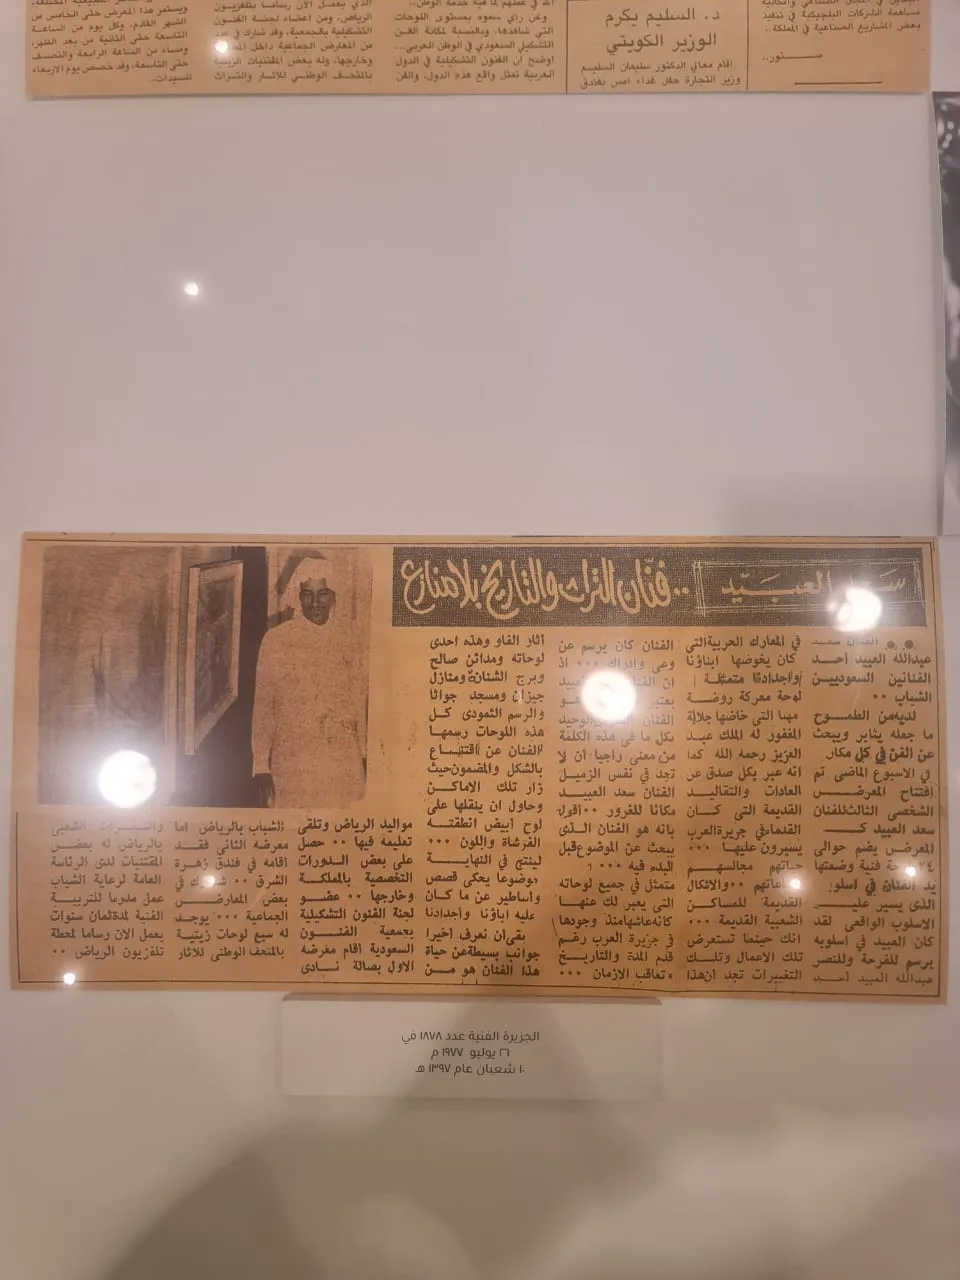 مساهمة الشركات البلجيكية في تنفيذ
بعض المشاريع الصناعية في المملكة..
د. السليم يكرم
الوزير الكويتي
اقام معالي الدكتور سليمان السليم
وزير التجارة حفل غداء امس بفندق
وعن راي سموه بمستوى اللوحات
التي شاهدها، وبالنسبة لمكانة الفن
التشكيلي السعودي في الوطن العربي..
اوضح ان الفنون التشكيلية في الدول
العربية تمثل واقع هذه الدول، والفن
الذي يعمل الآن رساما بتلفزيون
الرياض، ومن اعضاء لجنة الفنون
التشكيلية بالجمعية، وقد شارك في عدد
من المعارض الجماعية داخل
وخارجها، وله بعض المقتنيات الزيتية
بالمتحف الوطني للآثار والتراث
ويستمر هذا المعرض حتى الخامس من
الشهر القادم، وكل يوم من الساعة
التاسعة حتى الثانية من بعد الظهر،
ومساء من الساعة الرابعة والنصف
حتى التاسعة، وقد خصص يوم الاربعاء
للسيدات..
سعد العبيد .. فنان التراث والتاريخ بلا منازع
الفنان سعد
عبدالله العبيد احد
الفنانين السعوديين
الشباب ٠٠
لديه من الطموح
ما جعله يثابر ويبحث
عن الفن في كل مكان
في الاسبوع الماضى تم
افتتاح المعرض
الشخصى الثالث للفنان
سعد العبيد
المعرض يضم حوالى
فنية وضعتها
يد الفنان في اسلوب
الذى يسير عليه
الاسلوب الواقعى لقد
كان العبيد في اسلوبه
يرسم للفرحة وللنصر
عبدالله العبيد احد
في المعارك الحربية التى
كان يخوضها ابناؤنا
واجدادنا متمثلة
لوحة معركة روضة
مهنا التى خاضها جلالة
المغفور له الملك عبد
العزيز رحمه الله كما
انه عبر بكل صدق عن
العادات والتقاليد
القديمة التى كان
القدماء في جزيرة العرب
يسيرون عليها ٠٠٠
حياتهم مجالسهم
٠٠ والاشكال
القديمة للمساكن
الشعبية القديمة ٠٠٠
انك حينما تستعرض
تلك الاعمال وتلك
التغييرات تجد ان هذا
الفنان كان يرسم عن
وعى وادراك ٠٠٠ اذ
ان العبيد
يعتبر
الفنان الوحيد
بكل ما في هذه الكلمة
من معنى راجيا ان لا
تجد في نفس الزميل
الفنان سعد العبيد
مكانا للغرور ٠٠ اقول
بانه هو الفنان الذى
يبحث عن الموضوع قبل
البدء فيه ٠٠٠
متمثل في جميع لوحاته
التى يعبر لك عنها
كانه عاشها منذ وجودها
في جزيرة العرب رغم
قدم المدة والتاريخ
وتعاقب الازمان ٠٠٠
آثار الفاو وهذه احدى
لوحاته ومدائن صالح
وبرج الشنانة ومنازل
جيزان ومسجد جواثا
والرسم الثمودى كل
هذه اللوحات رسمها
الفنان عن اقتناع
بالشكل والمضمون حيث
زار تلك الاماكن
وحاول ان ينقلها على
لوح ابيض انطقته
الفرشاة واللون ٠٠٠
لينتج في النهاية
موضوعا يحكى قصص
واساطير عن ما كان
عليه اباؤنا واجدادنا
بقى ان نعرف اخيرا
جوانب بسيطة عن حياة
هذا الفنان هو من
مواليد الرياض وتلقى
تعليمه فيها ٠٠ حصل
على بعض الدورات
التخصصية بالمملكة
وخارجها ٠٠ عضو
لجنة الفنون التشكيلية
بجمعية الفنون
السعودية اقام معرضه
الاول بصالة نادى
الشباب بالرياض اما
معرضه الثانى فقد
اقامه في فندق زهرة
الشرق ٠٠ شارك في
بعض المعارض
الجماعية ٠٠٠ يوجد
له سبع لوحات زيتية
بالمتحف الوطنى للاثار
والتراث الشعبى
بالرياض له بعض
المقتنيات لدى الرئاسة
العامة لرعاية الشباب
عمل مدرسا للتربية
الفنية لمدة ثمان سنوات
يعمل الان رساما لمحطة
تلفزيون الرياض ٠٠
الجزيرة الفنية عدد ١٨٧٨ في
٢٦ يوليو ١٩٧٧ م
١٠ شعبان عام ١٣٩٧ هـ